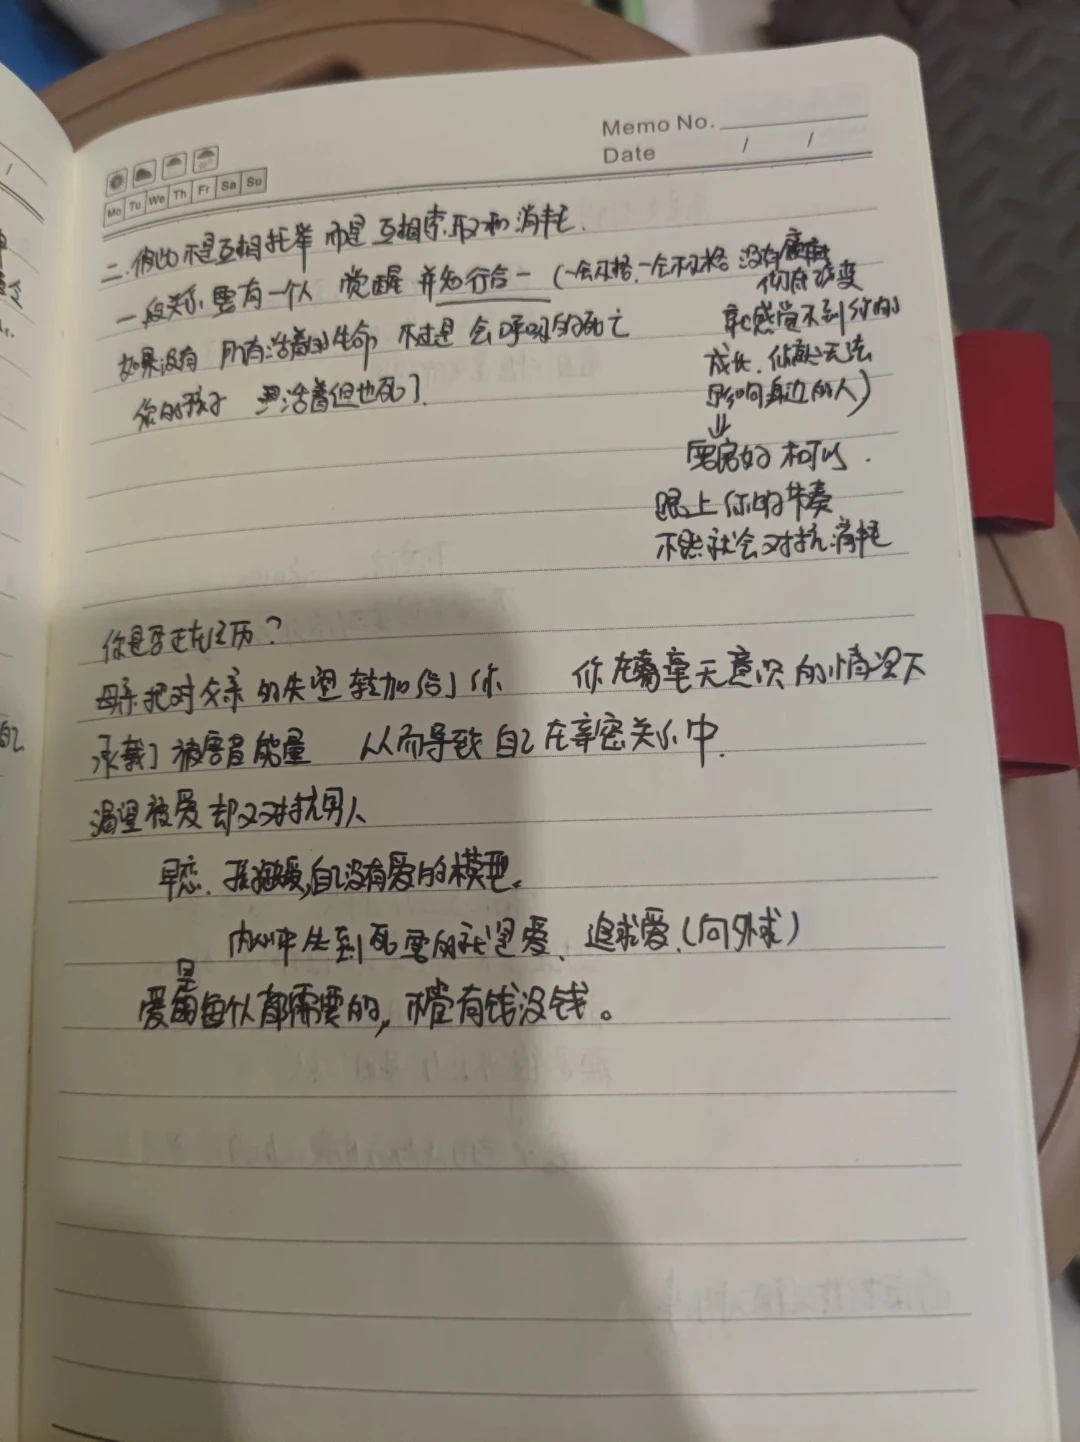 Memo No.
Date / /
Mo Tu We Th Fr Sa Su
二.彼此不是互相托举 而是 互相索取和消耗.
一段关系 要有一个人 觉醒 并知行合一 (一会及格,一会不及格 没有
彻底改变
如果没有 所有活着的生命 不过是 会呼吸的死亡
就感觉不到你的
成长.你就无法
你的孩子 活着但也死了.
影响身边的人)
⇓
跟上你的节奏
不然就会对抗消耗
你是否正在经历?
母亲把对父亲的失望转加给了你 你在毫无意识的情况下
承载了被害者能量 从而导致自己在亲密关系中.
渴望被爱却又对抗男人
早恋. 自己没有爱的模型.
内心中 爱、追求爱.(向外求)
爱是每个人都需要的,不管有钱没钱。